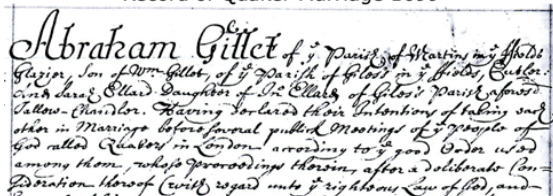 Abraham Gillet of yᵉ Parish of Martins in yᵉ ffields
Glazier, Son of Wᵐ Gillet, of yᵉ Parish of Giles's in yᵉ fields, Cutler.
And Sarah Ellard Daughter of Jnᵒ Ellard of Giles's Parish aforesᵈ
Tallow-Chandler. Having declared their Intentions of taking each
other in Marriage before several publick Meetings of yᵉ People of
God called Quakers in London according to yᵉ good Order used
among them, whose proceedings therein, after a deliberate Con-
sideration thereof (with regard unto yᵉ righteous Law of God, and